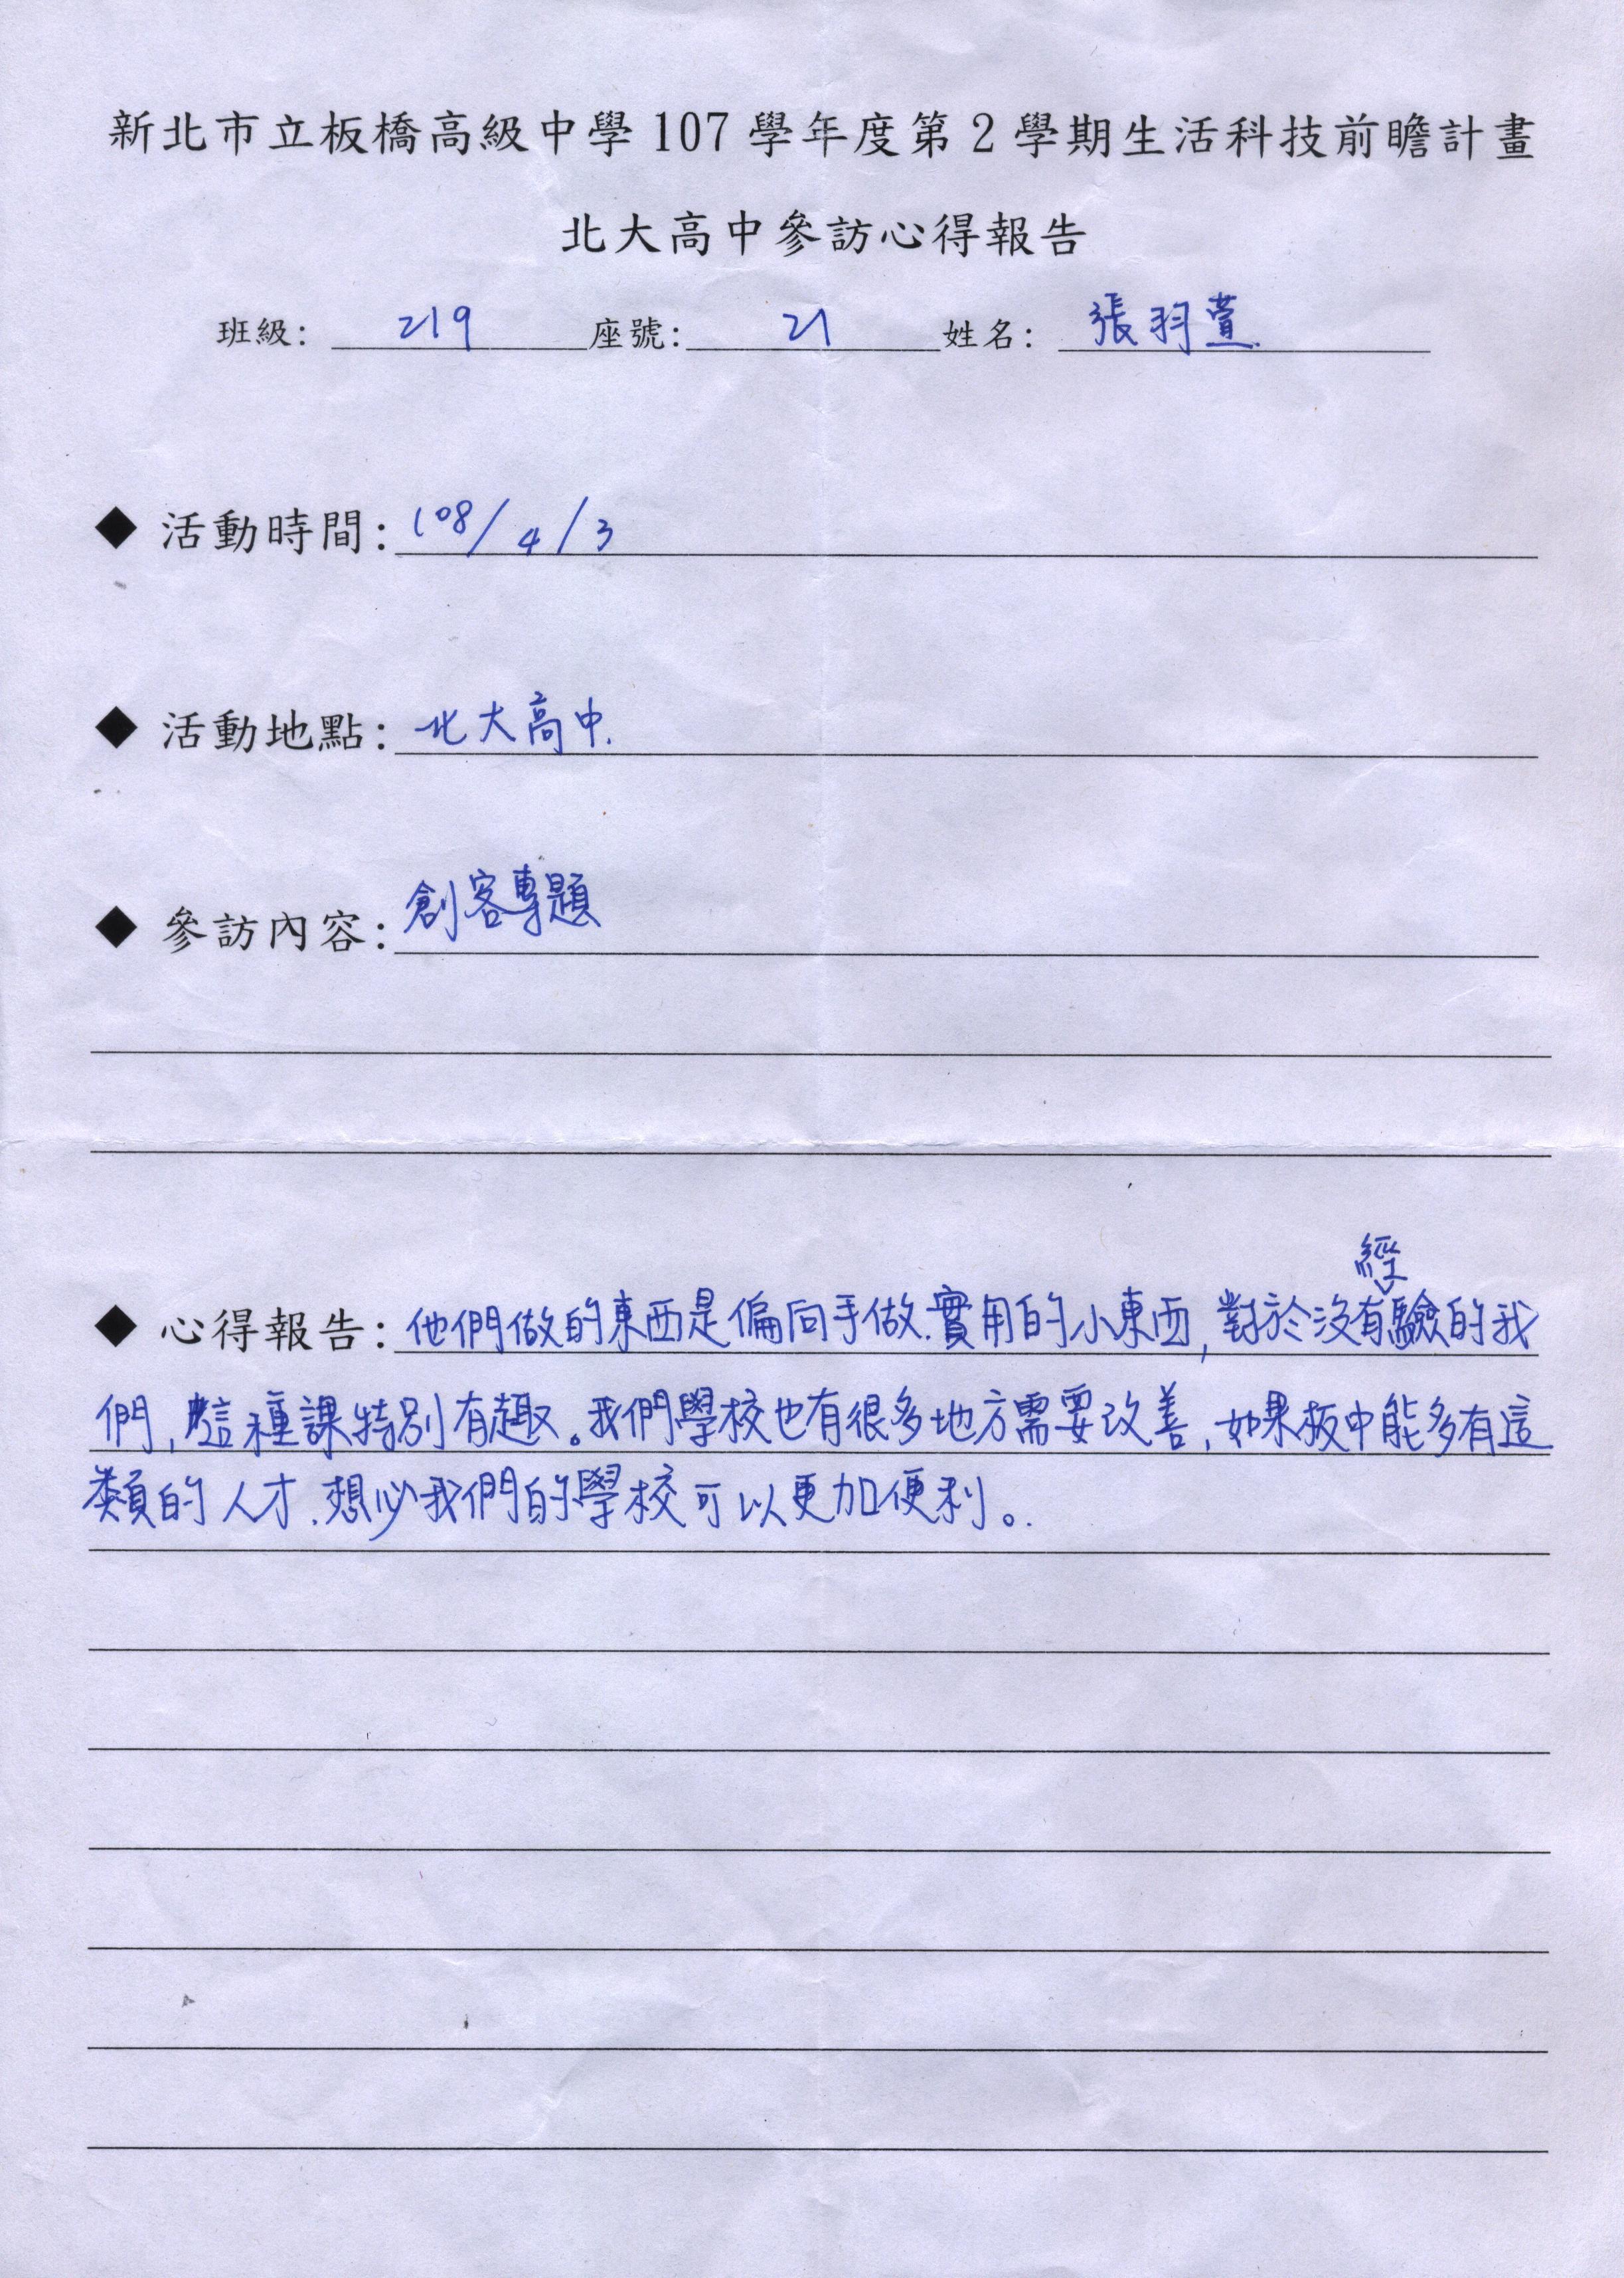 新北市立板橋高級中學 107 學年度第 2 學期生活科技前瞻計畫
北大高中參訪心得報告
班級： 219 座號： 21 姓名： 張羽萱
◆ 活動時間：108/4/3
◆ 活動地點：北大高中.
◆ 參訪內容：創客專題
◆ 心得報告：他們做的東西是偏向手做.實用的小東西,對於沒有經驗的我
們,這種課特別有趣。我們學校也有很多地方需要改善,如果板中能多有這
類的人才.想必我們的學校可以更加便利。